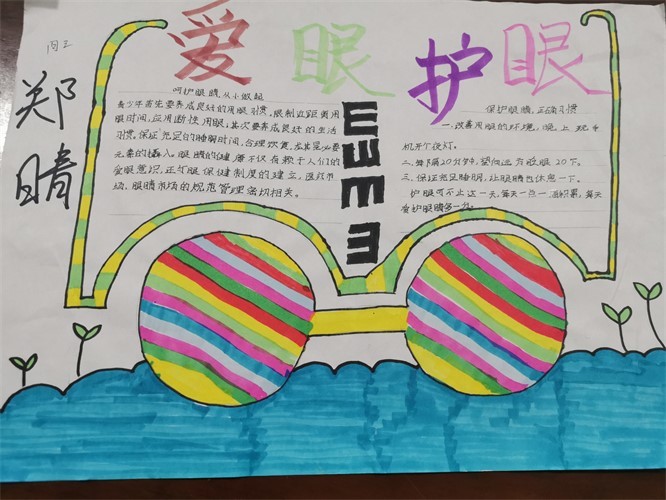 爱眼护眼
内三
郑晴
呵护眼睛,从小做起
青少年首先要养成良好的用眼习惯。限制近距离用
眼时间,应用断性用眼;其次要养成良好的生活
习惯,保证充足的睡眠时间,合理饮食,尤其是必要
元素的摄入。眼睛的健康不仅有赖于人们的
爱眼意识,正气眼保健制度的建立,医药市
场、眼睛市场的规范管理密切相关。
E
E
E
E
保护眼睛,正确习惯
一、改善用眼的环境,晚上玩手
机开个夜灯。
二、每下隔20分钟,望向远方眨眼20下。
三、保证充足睡眠,让眼睛也休息一下。
护眼可不止这一天,每天一点一滴积累,每天
爱护眼睛多一分。